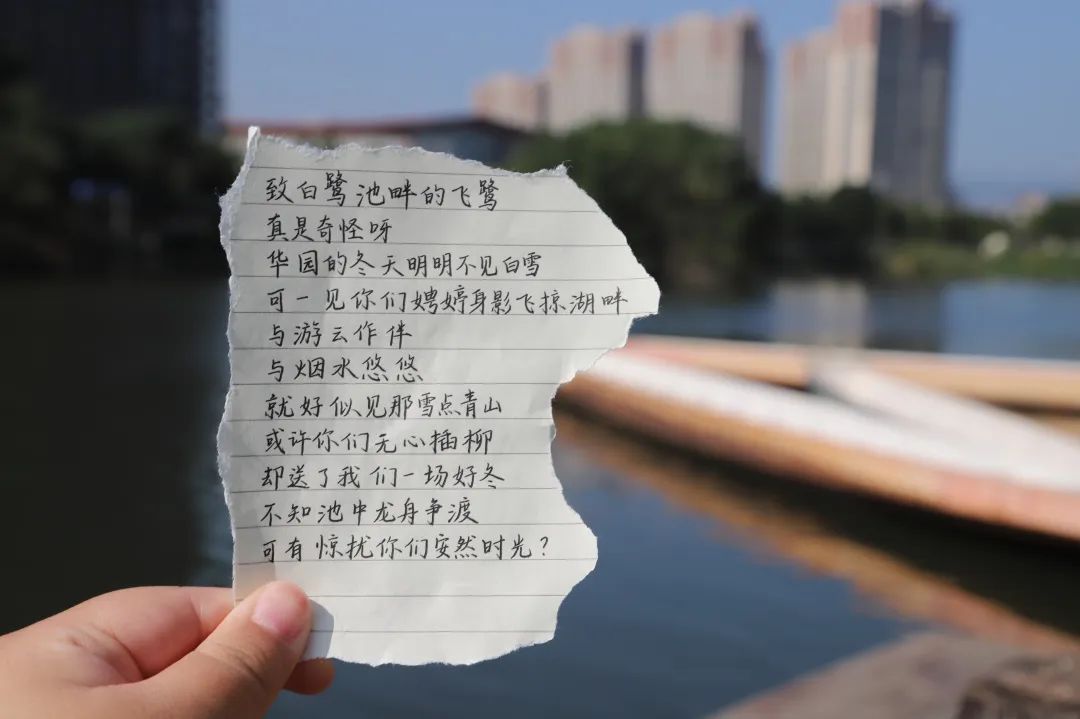 致白鹭池畔的飞鹭
真是奇怪呀
华园的冬天明明不见白雪
可一见你们娉婷身影飞掠湖畔
与游云作伴
与烟水悠悠
就好似见那雪点青山
或许你们无心插柳
却送了我们一场好冬
不知池中龙舟争渡
可有惊扰你们安然时光？